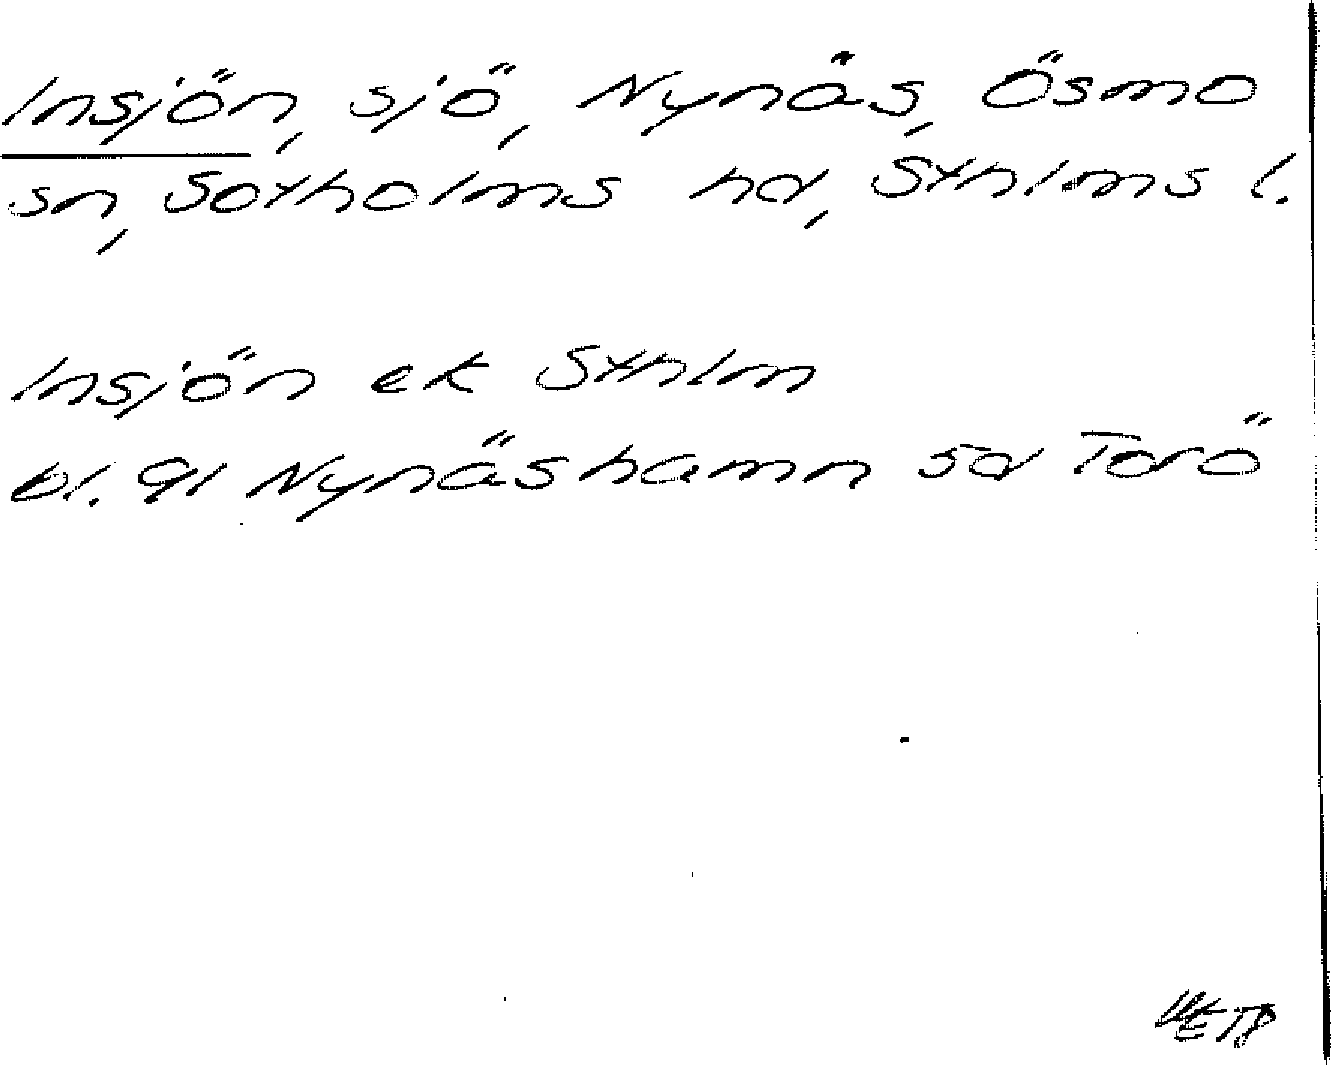 Insjön, sjö, Nynäs, Ösmo
sn, Sotholms hd, Sthlms l.
Insjön ek Sthlm
bl. 91 Nynäshamn so Torö